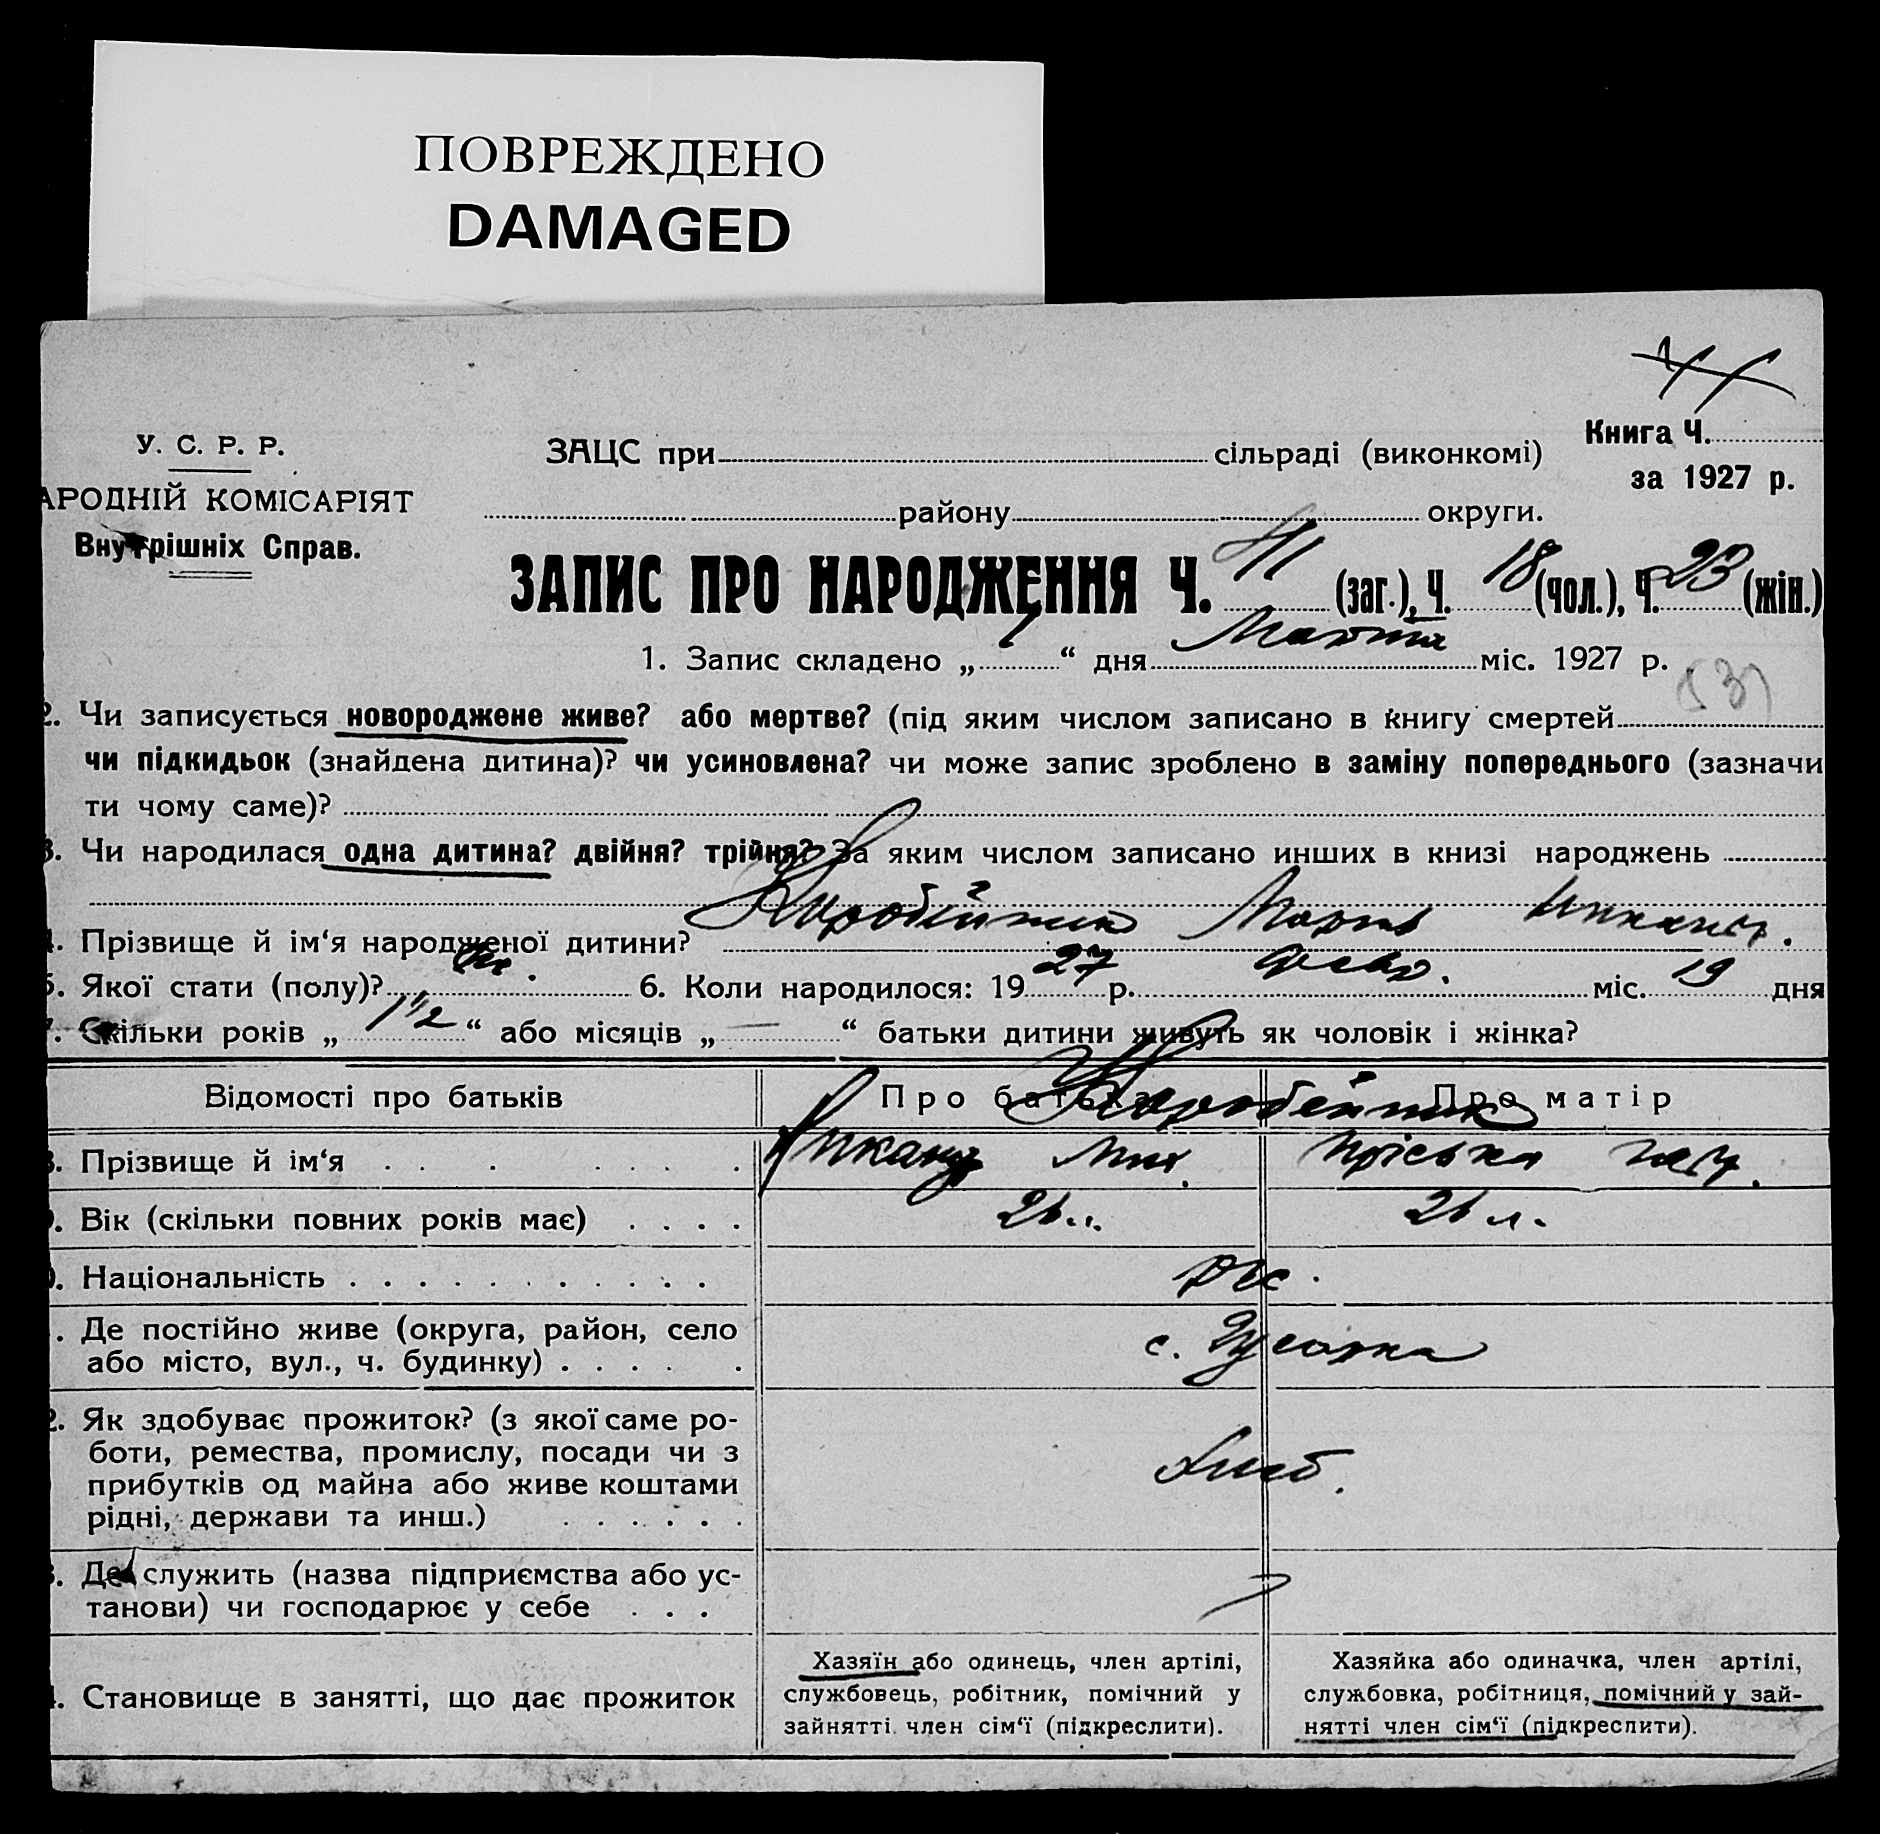 ПОВРЕЖДЕНО
DAMAGED
У. С. Р. Р.
АРОДНІЙ КОМІСАРІЯТ
Внутрішніх Справ.
ЗАЦС при сільраді (виконкомі)
Книга Ч.
за 1927 р.
району округи.
ЗАПИС ПРО НАРОДЖЕННЯ Ч. 41 (заг.), Ч. 18 (чол.), Ч. 23 (жін.)
1. Запис складено „ 1 “ дня Марта міс. 1927 р.
2. Чи записується новороджене живе? або мертве? (під яким числом записано в книгу смертей
чи підкидьок (знайдена дитина)? чи усиновлена? чи може запис зроблено в заміну попереднього (зазначи
ти чому саме)?
3. Чи народилася одна дитина? двійня? трійня? За яким числом записано инших в книзі народжень
4. Прізвище й ім‘я народженої дитини? Коробейник Мария
5. Якої стати (полу)? ж. 6. Коли народилося: 1927 р. февр. міс. 19 дня
7. Скільки років „ 1 1/2 “ або місяців „ — “ батьки дитини живуть як чоловік і жінка?
Відомості про батьків
Про батька
Про матір
Коробейник
8. Прізвище й ім‘я Никанор Мих. Пріська
9. Вік (скільки повних років має) 26 л. 26 л.
Національність
. Де постійно живе (округа, район, село
або місто, вул., ч. будинку) с. Гусарка
2. Як здобуває прожиток? (з якої саме ро-
боти, ремества, промислу, посади чи з
прибутків од майна або живе коштами
рідні, держави та инш.) Хлеб.
3. Де служить (назва підприємства або ус-
танови) чи господарює у себе
4. Становище в занятті, що дає прожиток
Хазяїн або одинець, член артілі,
службовець, робітник, помічний у
зайнятті член сім‘ї (підкреслити).
Хазяйка або одиначка, член артілі,
службовка, робітниця, помічний у зай-
нятті член сім‘ї (підкреслити).